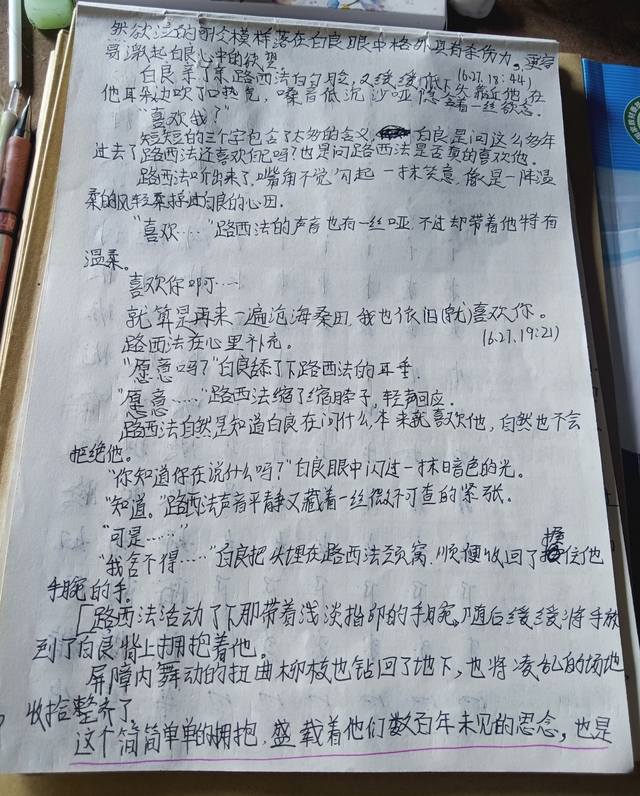 然欲泣的 模样落在白良眼中格外具有杀伤力。更容
易激起白良心中的欲望
(6.27.18:44)
白良亲了亲路西法的 ,又缓缓低下头靠近他,在
他耳朵边吹了口热气,嗓音低沉沙哑隐含着一丝欲念。
“喜欢我?”
短短的三个字包含了太多的含义, 白良是问这么多年
过去了路西法还喜欢他吗?也是问路西法是否真的喜欢他。
路西法听出来了,嘴角不觉勾起一抹笑意,像是一阵温
柔的风轻柔拂过白良的心田。
“喜欢……”路西法的声音也有一丝哑,不过却带着他特有
温柔。
喜欢你啊……
就算是再来一遍沧海桑田,我也依旧(就)喜欢你。
路西法在心里补充。
(6.27.19:21)
“愿意吗?”白良舔了下路西法的耳垂.
“愿意……”路西法缩了缩脖子,轻声回应。
路西法自然是知道白良在问什么,本来就喜欢他,自然也不会
拒绝他。
“你知道你在说什么吗?”白良眼中闪过一抹暗色的光。
“知道。”路西法声音平静又藏着一丝微不可查的紧张。
“可是……”
“我舍不得……”白良把头埋在路西法颈窝,顺便收回了握住他
手腕的手.
[路西法活动了下那带着浅淡指印的手腕。]随后缓缓将手放
到了白良背上拥抱着他。
屏障内舞动的扭曲柳枝也钻回了地下,也将凌乱的场地
收拾整齐了
这个简简单单的拥抱,盛载着他们数百年未见的思念,也是